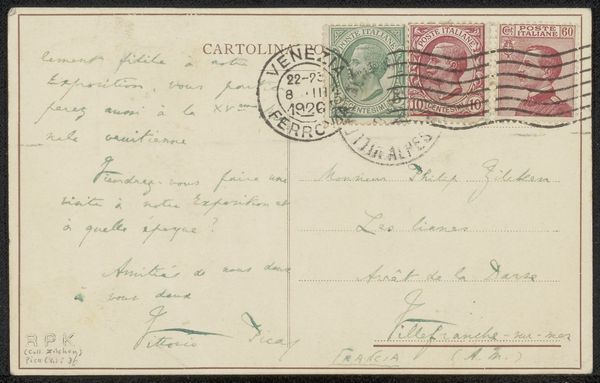 CARTOLINA PO
lement fidèle à notre
Exposition, vous parti
perez aussi à la XVme
nale vénitienne
Viendrez-vous faire une
visite à notre Exposition et
à quelle époque?
Amitiés de nous deux
à vous deux
Vittorio Pica
RPK
(Coll. Zilcken)
Pica (V.): 36
VENEZIA
22-23
8 III
1926
FERROVIA
POSTE ITALIANE
CENTESIMI
POSTE ITALIANE
10 CENTESIMI 10
POSTE ITALIANE
Cent 60
ALPES
Monsieur Philip Zilcken
Les lianes
Arrêt de la Darse
Villefranche-sur-mer
FRANCIA (A.M.)